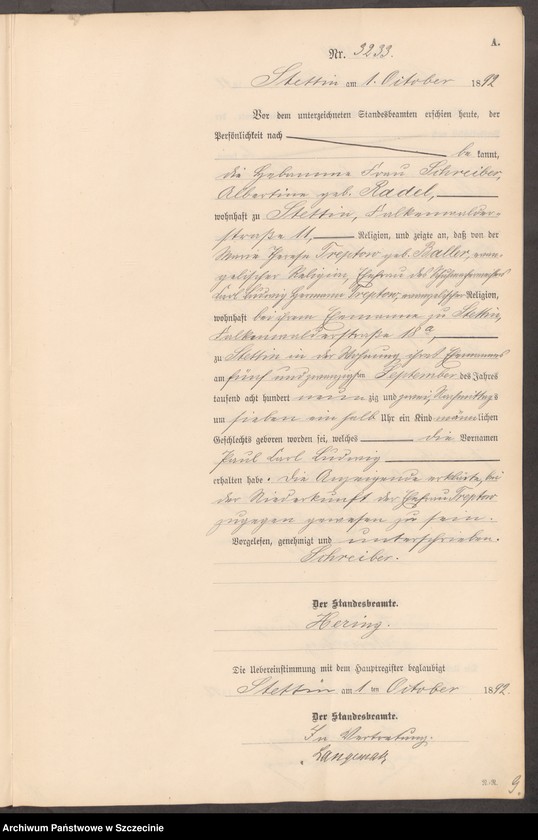 A.
Nr. 3233.
Stettin am 1. October 1892
Vor dem unterzeichneten Standesbeamten erschien heute, der
Persönlichkeit nach
be kannt,
die Hebamme Frau Schreiber,
Albertine geb. Radel,
wohnhaft zu Stettin, Falkenwalder-
straße 11, Religion, und zeigte an, daß von der
Marie Therese Treptow geb. Baller, evan-
gelischer Religion, Ehefrau des
Carl Ludwig Hermann Treptow, evangelischer Religion,
wohnhaft bei ihrem Ehemanne zu Stettin,
Falkenwalderstraße 18a,
zu Stettin in der Wohnung ihres Ehemannes
am fünf und zwanzigsten September des Jahres
tausend acht hundert neun zig und zwei, Nachmittags
um sieben ein halb Uhr ein Kind männlichen
Geschlechts geboren worden sei, welches die Vornamen
Paul Carl Ludwig
erhalten habe. Die Anzeigende erklärte, bei
der Niederkunft der Ehefrau Treptow
zugegen gewesen zu sein.
Vorgelesen, genehmigt und unterschrieben.
Schreiber.
Der Standesbeamte.
Hering.
Die Uebereinstimmung mit dem Hauptregister beglaubigt
Stettin am 1 ten October 1892.
Der Standesbeamte.
In Vertretung.
9.
Archiwum Państwowe w Szczecinie